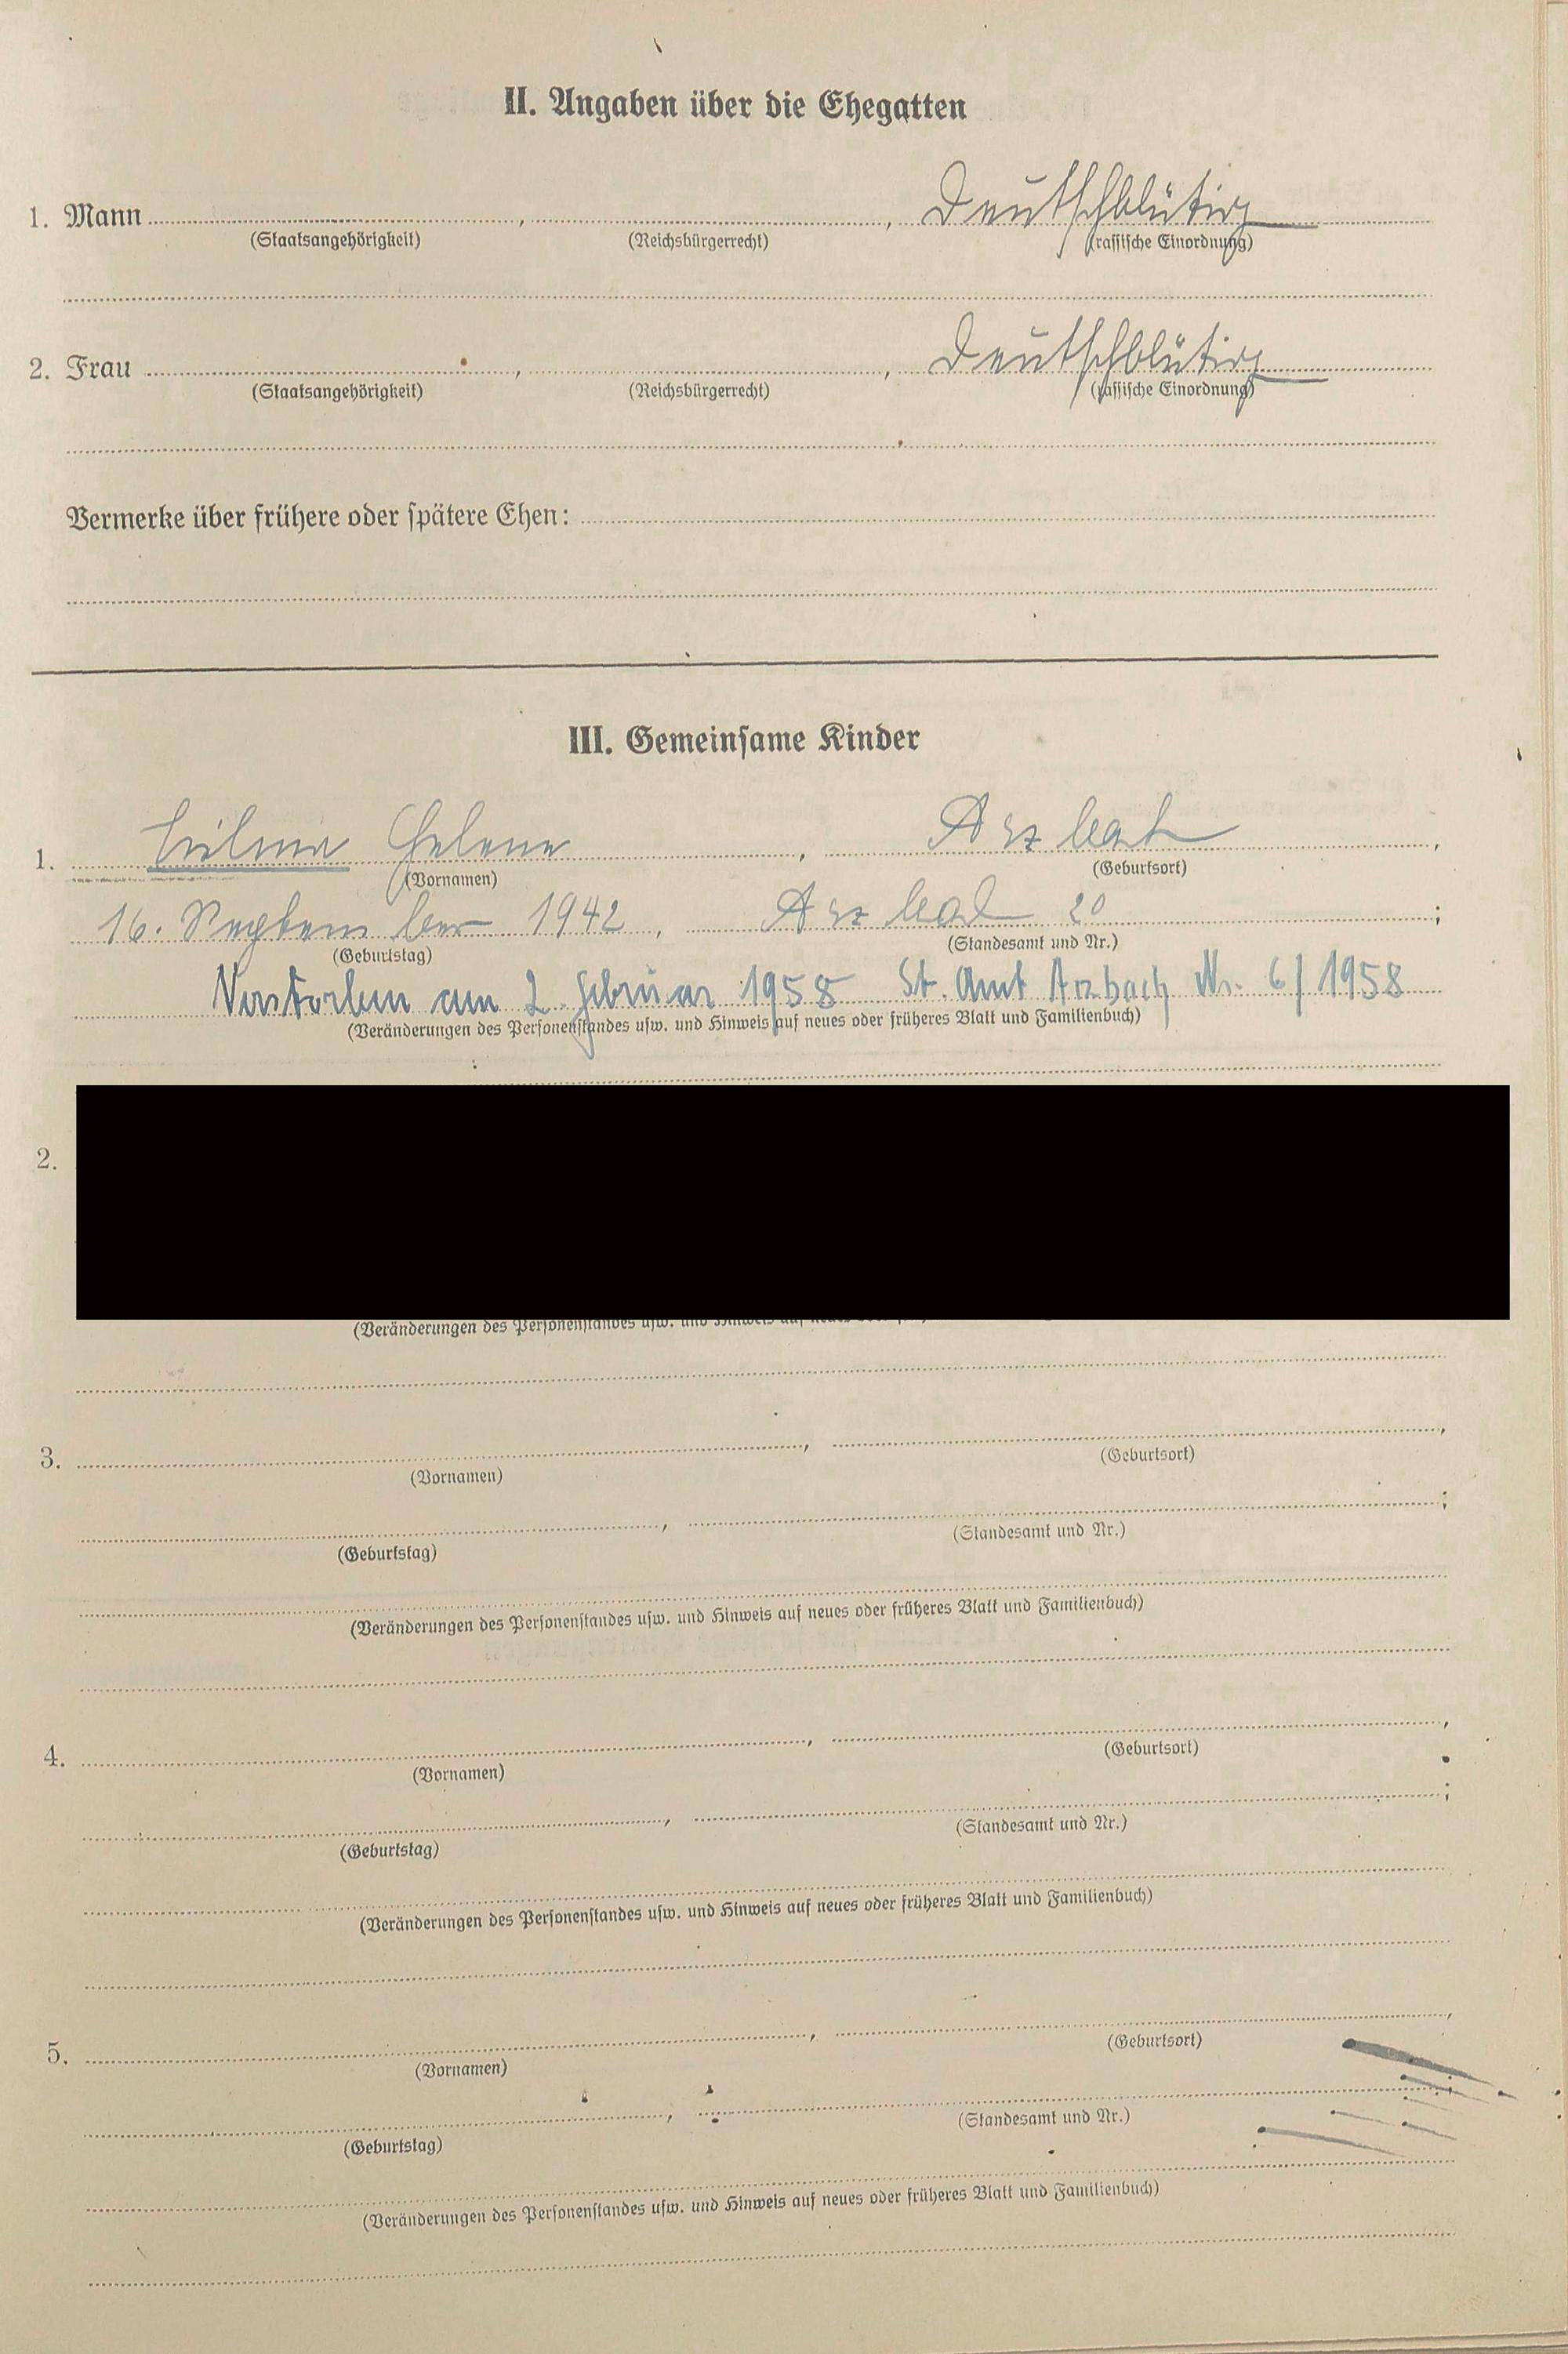 II. Angaben über die Ehegatten
1. Mann , , Deutschblütig
(Staatsangehörigkeit) (Reichsbürgerrecht) (rassische Einordnung)
2. Frau , , Deutschblütig
(Staatsangehörigkeit) (Reichsbürgerrecht) (rassische Einordnung)
Vermerke über frühere oder spätere Ehen:
III. Gemeinsame Kinder
1. Helene , Arzbach ,
(Vornamen) (Geburtsort)
16. September 1942 , Arzbach 20 ;
(Geburtstag) (Standesamt und Nr.)
Verstorben am 2. Februar 1958 St. Amt Arzbach Nr. 6/1958
(Veränderungen des Personenstandes usw. und Hinweis auf neues oder früheres Blatt und Familienbuch)
2.
(Veränderungen des Personenstandes usw. und Hinweis auf neues oder
3. , ,
(Vornamen) (Geburtsort)
, ;
(Geburtstag) (Standesamt und Nr.)
(Veränderungen des Personenstandes usw. und Hinweis auf neues oder früheres Blatt und Familienbuch)
4. , ,
(Vornamen) (Geburtsort)
, ;
(Geburtstag) (Standesamt und Nr.)
(Veränderungen des Personenstandes usw. und Hinweis auf neues oder früheres Blatt und Familienbuch)
5. , ,
(Vornamen) (Geburtsort)
, ;
(Geburtstag) (Standesamt und Nr.)
(Veränderungen des Personenstandes usw. und Hinweis auf neues oder früheres Blatt und Familienbuch)